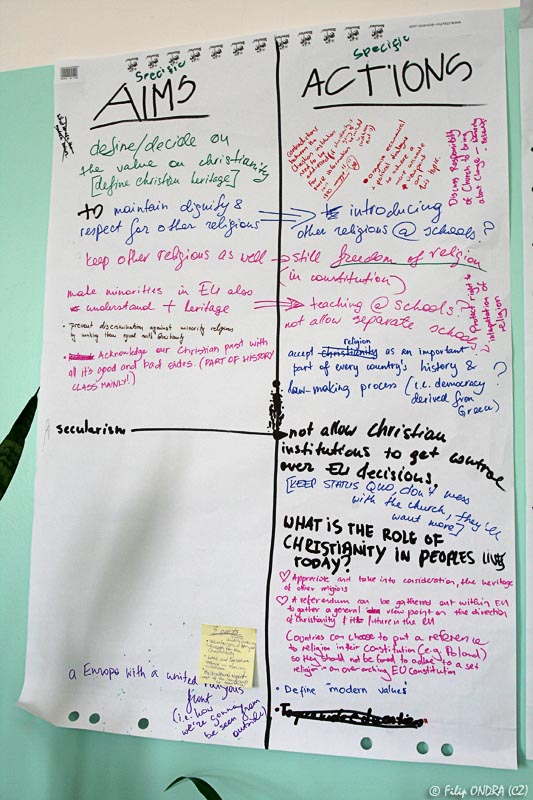 Specific
AIMS
define/decide on
the value on christianity
[define christian heritage]
to maintain dignify &
respect for other religions
keep other religions as well
make minorities in EU also
understand + heritage
• prevent discrimination against minority religions
by making them equal with christianity
• Acknowledge our Christian past with
all it's good and bad sides. (PART OF HISTORY
CLASS MAINLY!)
secularism
a Europe with a united religious
front
(i.e. how
we're gonna
be seen from
outside)
Specific
ACTIONS
Discuss Responsibility
of Church to bring
about Change
introducing
other religions @ schools?
still freedom of religion
(in constitution)
teaching @ schools?
not allow separate schools
Protect right to
interpretation of
religion
religion
accept christianity as an important
part of every country's history &
law-making process (i.e. democracy
derived from
Greece)
?
not allow christian
institutions to get control
over EU decisions.
[KEEP STATUS QUO, don't mess
with the church, they'll
want more]
WHAT IS THE ROLE OF
CHRISTIANITY IN PEOPLES LIVES
TODAY?
♡ Appreciate and take into consideration, the heritage
of other religions
♡ A referendum can be gathered out within EU
to gather a general view point on the direction
of christianity & it's future in the EU
Countries can choose to put a reference
to religion in their constitution (e.g. Poland)
so they should not be forced to adhere to a set
religion = overarching EU constitution
• Define modern values
© Filip ONDRA (CZ)